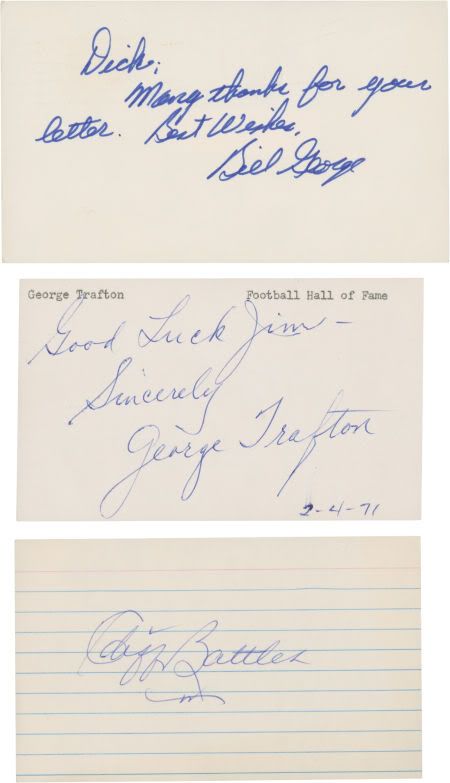 Dick,
Many thanks for your
letter. Best Wishes,
Bill George
George Trafton Football Hall of Fame
Good Luck Jim -
Sincerely
George Trafton
2-4-71
Cliff Battles